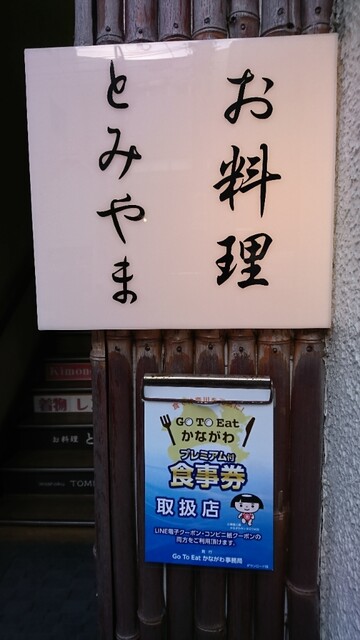 お料理
とみやま
GO TO Eat
かながわ
プレミアム付
食事券
取扱店
LINE電子クーポン・コンビニ紙クーポンの
両方をご利用頂けます。
発行
Go To Eat かながわ事務局
Kimono
着物 レ
お料理 と
TOMI